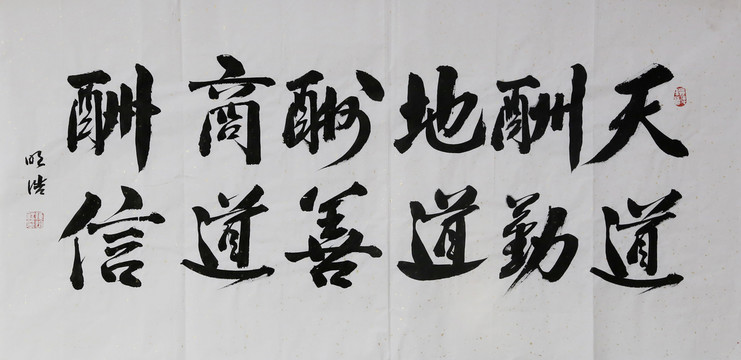 天道
酬勤
地道
酬善
商道
酬信
明浩